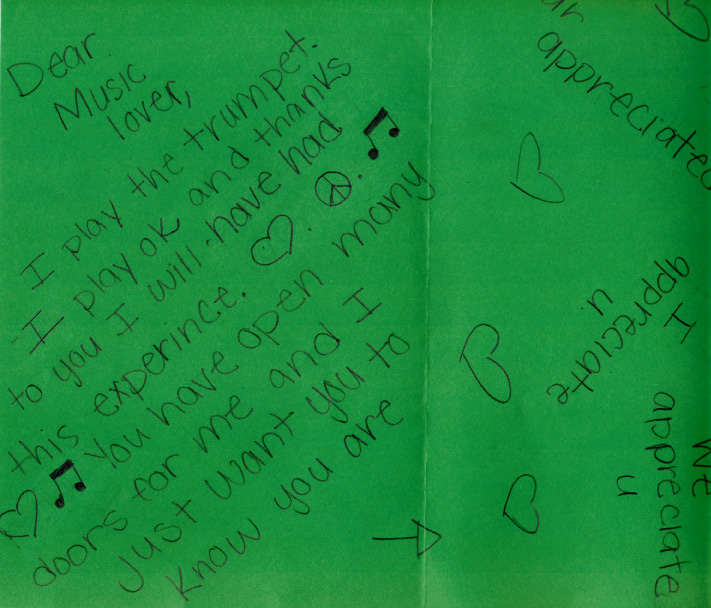 Dear
Music
lover,
I play the trumpet.
I play ok and thanks
to you I will have had
this experince.
You have open many
doors for me and I
Just want you to
know you are
appreciated
I
appreciate
u
We
appreciate
u